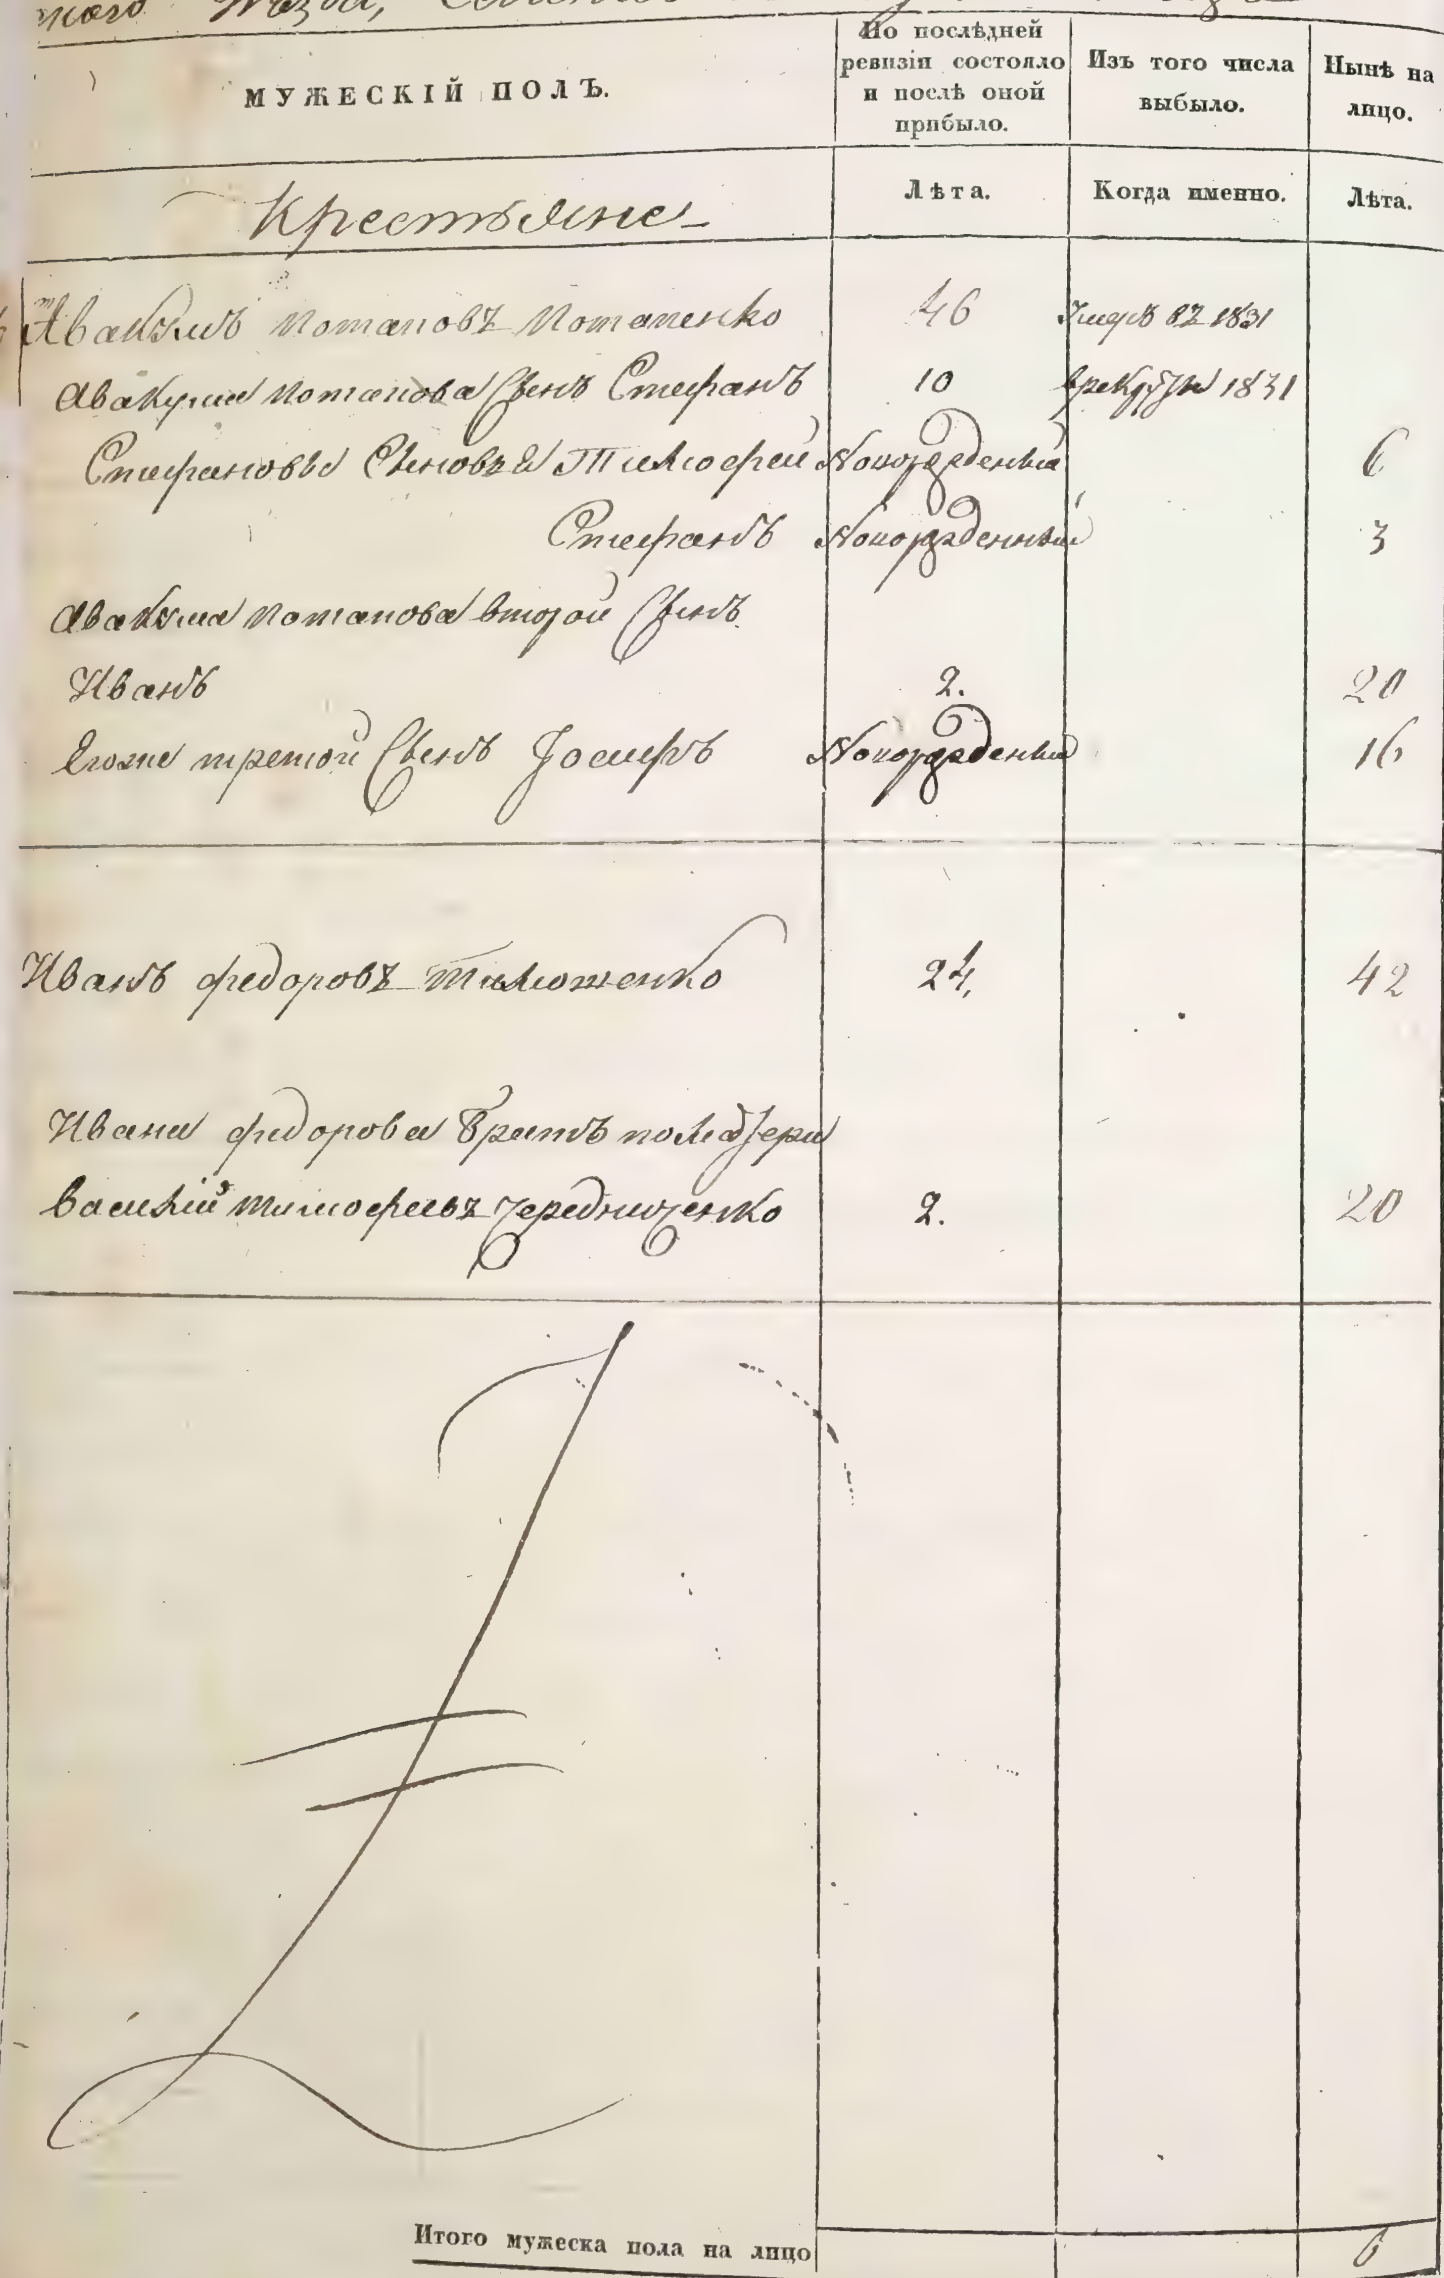 МУЖЕСКІЙ ПОЛЪ.
По послѣдней
ревизіи состояло
и послѣ оной
прибыло.
Изъ того числа
выбыло.
Нынѣ на
лицо.
Крестьяне
Лѣта.
Когда именно.
Лѣта.
Авакумъ Потаповъ Потапенко 46 Умеръ въ 1831
Авакума Потапова Сынъ Стефанъ 10 врекруты 1831
Стефановы Сыновья Тимофей Новорожденый 6
Стефанъ Новорожденный 3
Авакума Потапова второй Сынъ
Иванъ 2. 20
Егоже третой Сынъ Iосифъ Новорожденый 16
Иванъ федоровъ Тимошенко 24. 42
Ивана федорова Братъ поматери
Василий тимофеевъ Чередниченко 2. 20
Итого мужеска пола на лицо 6